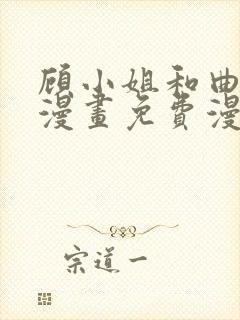 顾小姐和曲
漫畫免費漫
宗道一